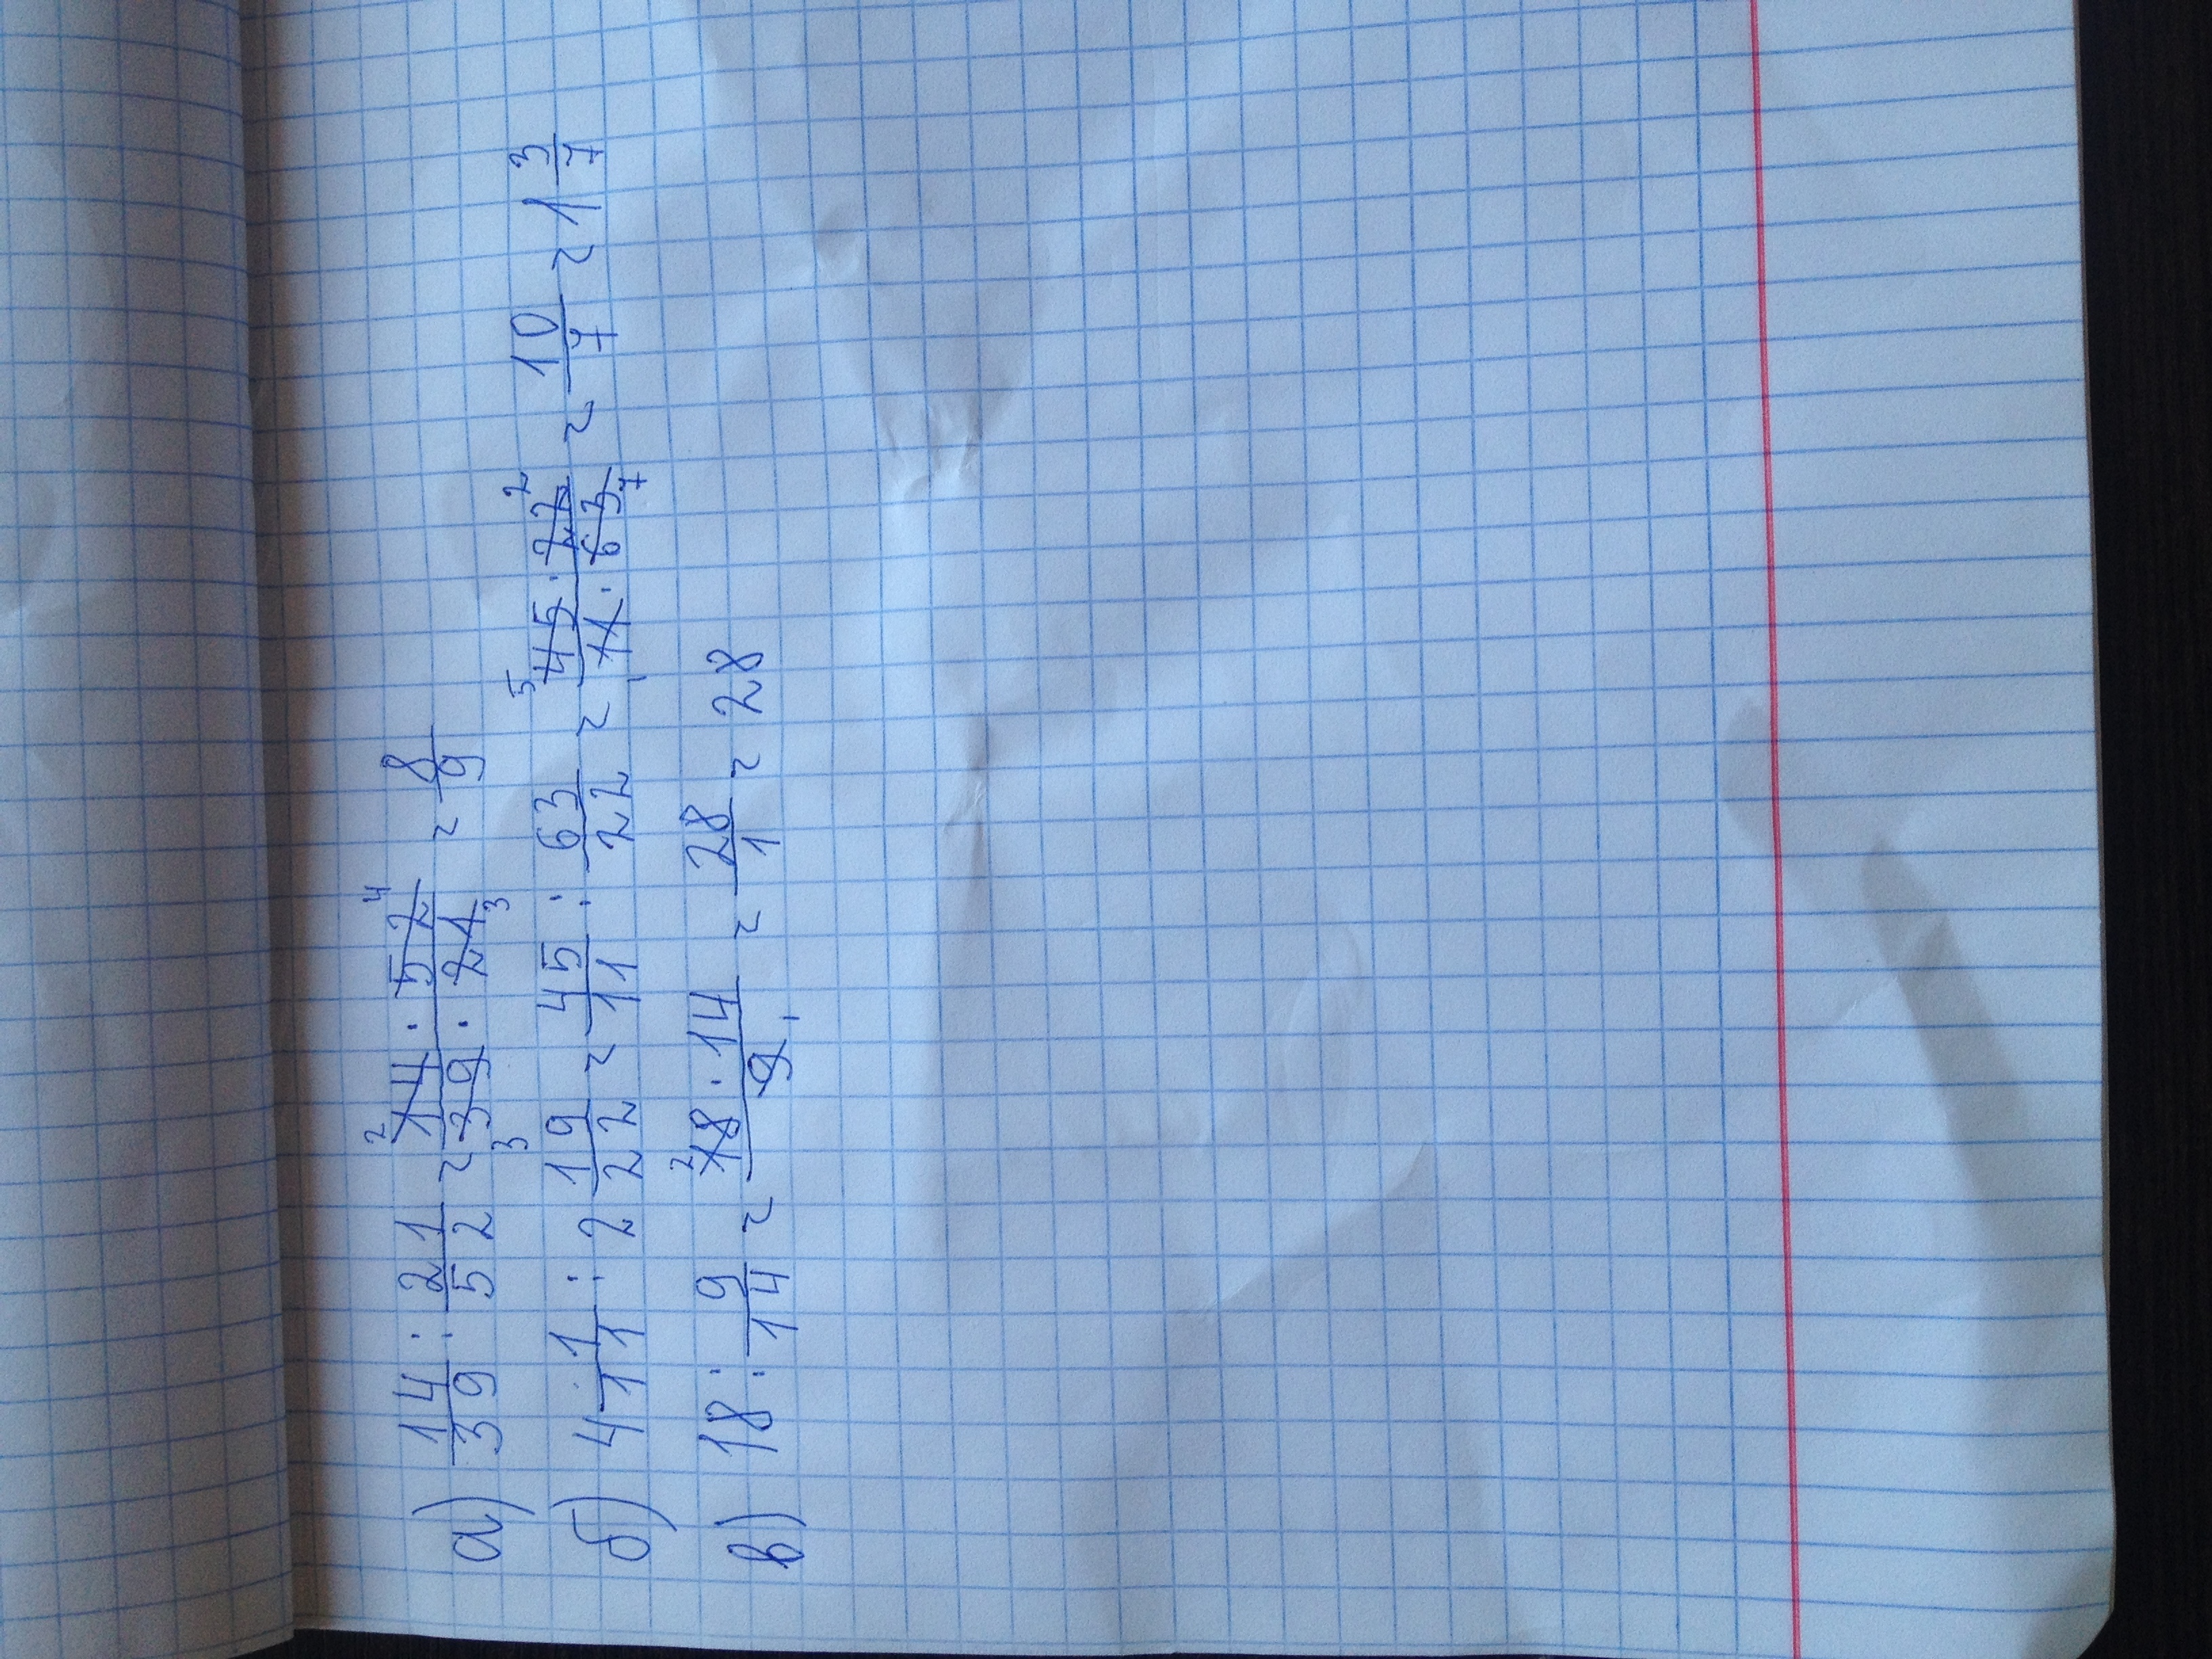 а) 14/39 : 21/52 = 14 · 52 / 39 · 21 = 8/9
б) 4 1/11 : 2 19/22 = 45/11 : 63/22 = 45 · 22 / 11 · 63 = 10/7 = 1 3/7
в) 18 : 9/14 = 18 · 14 / 9 = 28/1 = 28